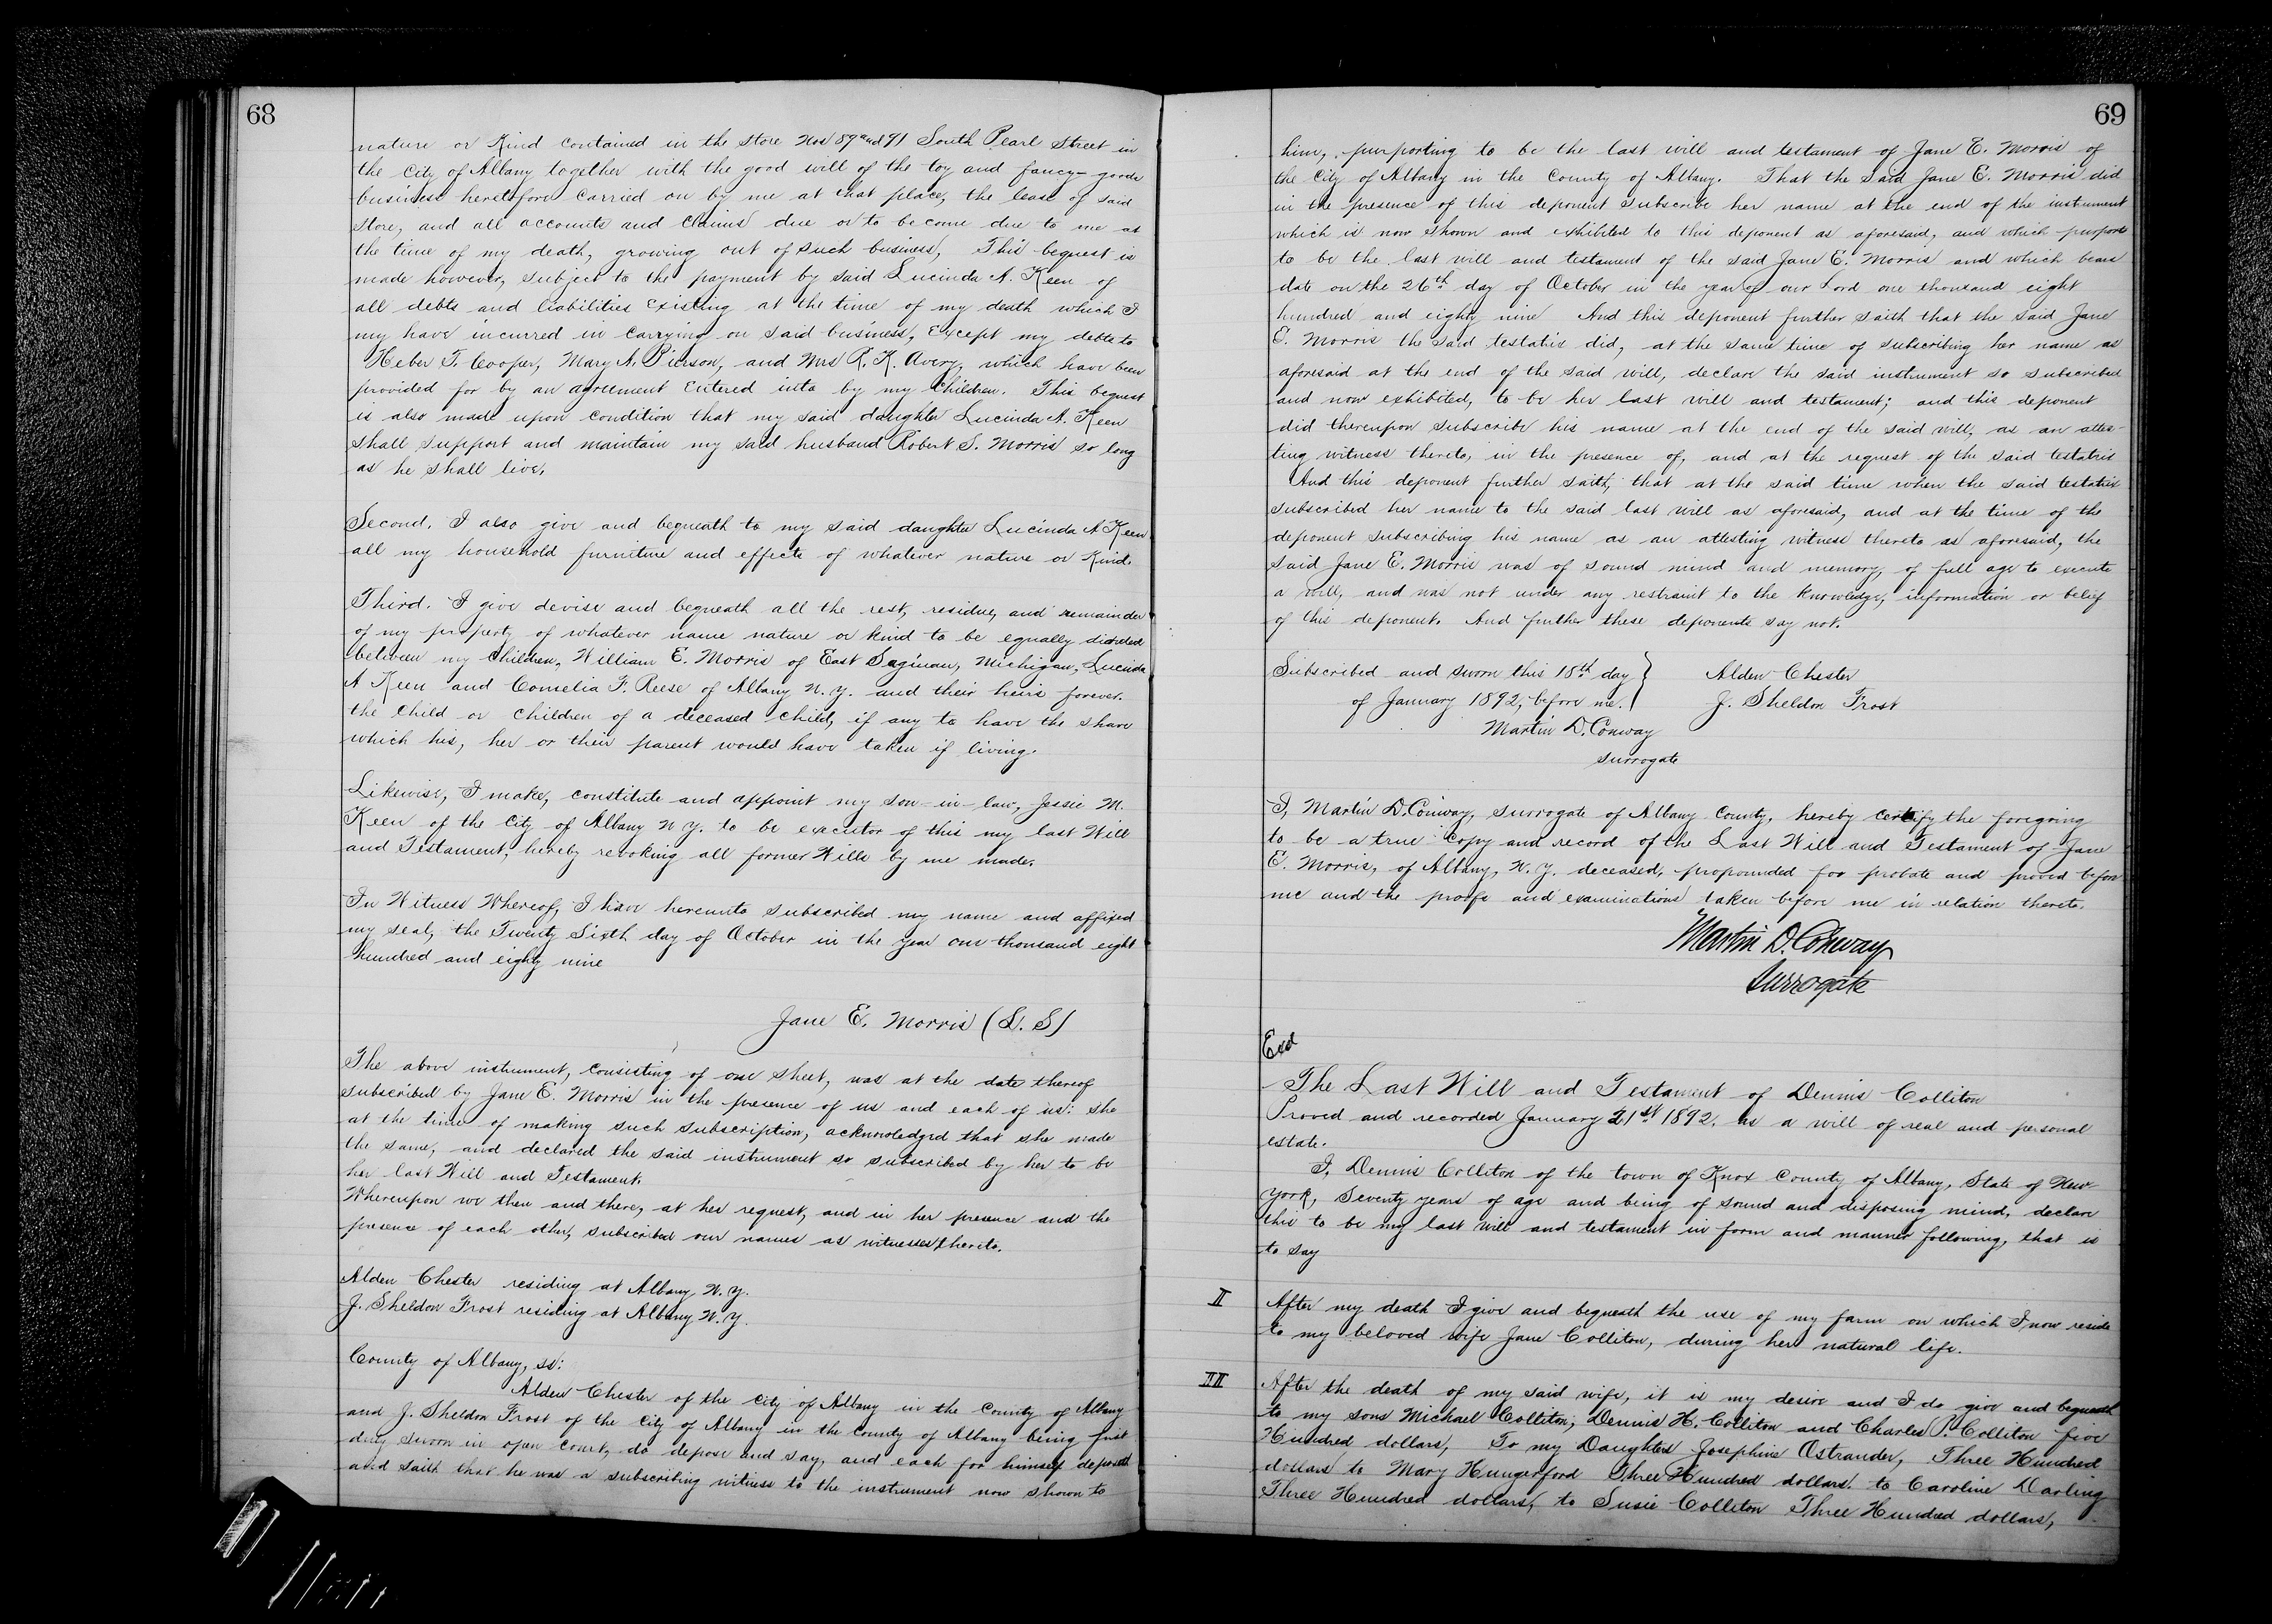 68
nature or Kind contained in the store Nos 89 and 91 South Pearl Street in
the City of Albany together with the good will of the toy and fancy-goods
business heretofore carried on by me at that place, the lease of said
store, and all accounts and claims due or to become due to me at
the time of my death, growing out of such business, This bequest is
made however, subject to the payment by said Lucinda A. Keen of
all debts and liabilities existing at the time of my death which I
my have incurred in carrying on said business, except my debts to
Heber T. Cooper, Mary A. Pierson, and Mrs R. K. Avery, which have been
provided for by an agreement entered into by my Children. This bequest
is also made upon condition that my said daughter Lucinda A. Keen
shall support and maintain my said husband Robert S. Morris so long
as he shall live,
Second. I also give and bequeath to my said daughter Lucinda A Keen
all my household furniture and effects of whatever nature or Kind.
Third. I give devise and bequeath all the rest, residue, and remainder
of my property of whatever name nature or kind to be equally divided
between my Children, William E. Morris of East Saginaw, Michigan, Lucinda
A Keen and Cornelia F. Reese of Albany N.Y. and their heirs forever.
the child or children of a deceased child, if any to have the share
which his, her or their parent would have taken if living.
Likewise, I make, constitute and appoint my son-in-law, Jessie M.
Keen of the City of Albany N Y. to be executor of this my last Will
and Testament, hereby revoking all former Wills by me made.
In Witness Whereof, I have hereunto subscribed my name and affixed
my seal, the Twenty Sixth day of October in the year one thousand eight
hundred and eighty nine
Jane E. Morris (L. S)
The above instrument, consisting of one sheet, was at the date thereof
subscribed by Jane E. Morris in the presence of us and each of us: she
at the time of making such subscription, acknowledged that she made
the same, and declared the said instrument so subscribed by her to be
her last Will and Testament.
Whereupon we then and there, at her request, and in her presence and the
presence of each other, subscribed our names as witnesses thereto.
Alden Chester residing at Albany N.Y.
J. Sheldon Frost residing at Albany N.Y.
County of Albany, ss:
Alden Chester of the City of Albany in the County of Albany
and J. Sheldon Frost of the City of Albany in the County of Albany being first
duly sworn in open court, do depose and say, and each for himself deposeth
and saith that he was a subscribing witness to the instrument now shown to
69
him, purporting to be the last will and testament of Jane E. Morris of
the City of Albany in the County of Albany. That the said Jane E. Morris did
in the presence of this deponent subscribe her name at the end of the instrument
which is now shown and exhibited to this deponent as aforesaid, and which purports
to be the last will and testament of the said Jane E. Morris and which bears
date on the 26th day of October in the year of our Lord one thousand eight
hundred and eighty nine And this deponent further saith that the said Jane
E. Morris the said testatrix did, at the same time of subscribing her name as
aforesaid at the end of the said will, declare the said instrument so subscribed
and now exhibited, to be her last will and testament; and this deponent
did thereupon subscribe his name at the end of the said will, as an attes-
ting witness thereto, in the presence of, and at the request of the said testatrix
And this deponent further saith, that at the said time when the said testatrix
subscribed her name to the said last will as aforesaid, and at the time of the
deponent subscribing his name as an attesting witness thereto as aforesaid, the
said Jane E. Morris was of sound mind and memory, of full age to execute
a will, and was not under any restraint to the knowledge, information or belief
of this deponent. And further these deponents say not.
Subscribed and sworn this 18th day } Alden Chester
of January 1892, before me. } J. Sheldon Frost
Martin D. Conway
Surrogate
I, Martin D. Conway, Surrogate of Albany County, hereby certify the foregoing
to be a true copy and record of the Last Will and Testament of Jane
E. Morris, of Albany, N.Y. deceased, propounded for probate and proved before
me and the proofs and examinations taken before me in relation thereto.
Martin D. Conway
Surrogate
Exd
The Last Will and Testament of Dennis Colliton
Proved and recorded January 21st 1892, as a will of real and personal
estate.
I, Dennis Colliton of the town of Knox County of Albany, State of New
York, Seventy years of age and being of sound and disposing mind, declare
this to be my last will and testament in form and manner following, that is
to say
II After my death I give and bequeath the use of my farm on which I now reside
to my beloved wife Jane Colliton, during her natural life.
III After the death of my said wife, it is my desire and I do give and bequeath
to my sons Michael Colliton, Dennis H. Colliton and Charles P. Colliton five
Hundred dollars, To my Daughters Josephine Ostrander, Three Hundred
dollars to Mary Hungerford Three Hundred dollars. to Caroline Darling
Three Hundred dollars, to Susie Colliton Three Hundred dollars,